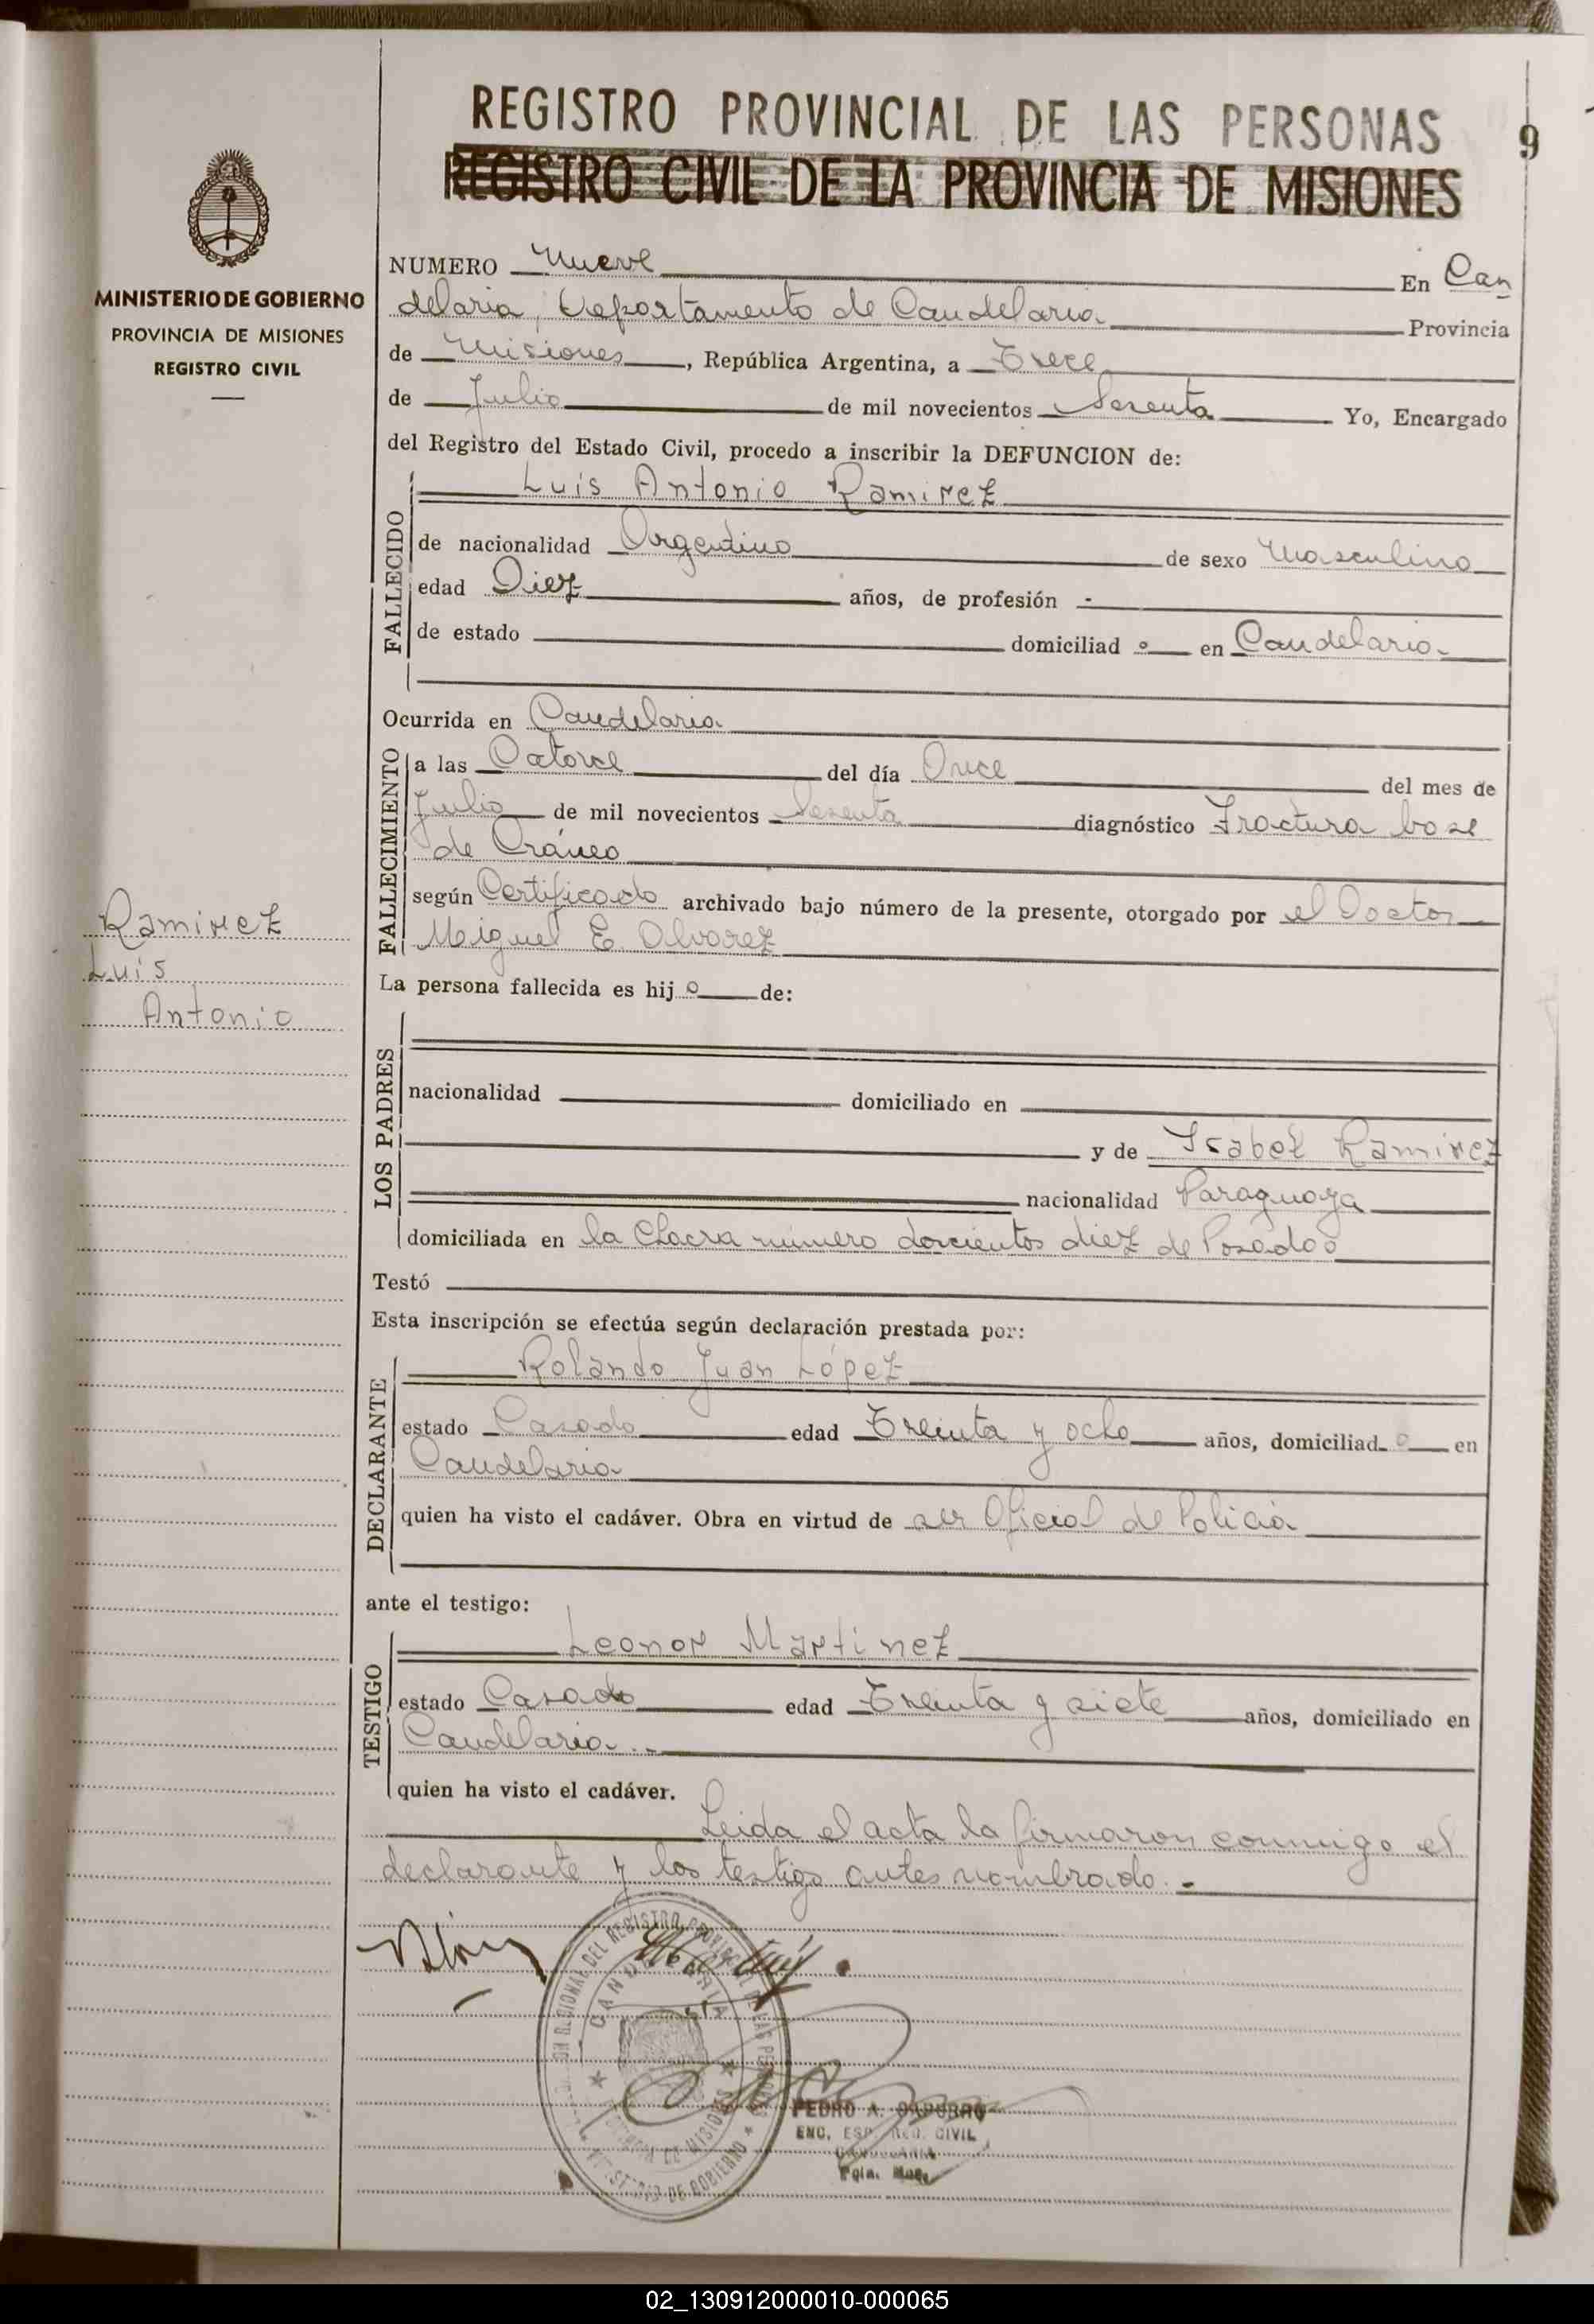 REGISTRO PROVINCIAL DE LAS PERSONAS
9
REGISTRO CIVIL DE LA PROVINCIA DE MISIONES
MINISTERIO DE GOBIERNO
PROVINCIA DE MISIONES
REGISTRO CIVIL
NUMERO Nueve En Can
delaria, Departamento de Candelaria Provincia
de Misiones, República Argentina, a Trece
de Julio de mil novecientos Sesenta Yo, Encargado
del Registro del Estado Civil, procedo a inscribir la DEFUNCION de:
FALLECIDO
Luis Antonio Ramirez
de nacionalidad Argentino de sexo Masculino
edad Diez años, de profesión -
de estado domiciliad o en Candelaria.
Ocurrida en Candelaria
FALLECIMIENTO
a las Catorce del día Once del mes de
Julio de mil novecientos Sesenta diagnóstico Fractura base
de Cráneo
según Certificado archivado bajo número de la presente, otorgado por el Doctor
Miguel E. Alvarez
Ramirez
Luis
Antonio
La persona fallecida es hij o de:
LOS PADRES
nacionalidad domiciliado en
y de Isabel Ramirez
nacionalidad Paraguaya
domiciliada en la Chacra número doscientos diez de Posadas
Testó
Esta inscripción se efectúa según declaración prestada por:
DECLARANTE
Rolando Juan López
estado Casado edad Treinta y ocho años, domiciliad o en
Candelaria
quien ha visto el cadáver. Obra en virtud de ser Oficial de Policía
ante el testigo:
TESTIGO
Leonor Martinez
estado Casado edad Treinta y siete años, domiciliado en
Candelaria.-
quien ha visto el cadáver.
Leida el acta la firmaron conmigo el
declarante y los testigo antes nombrado.-
DEL REGISTRO PROVINCIAL DE LAS PERSONAS
CANDELARIA
MISIONES
DE GOBIERNO
PEDRO A. CAPURRO
ENC. REG. CIVIL
CANDELARIA
02_130912000010-000065